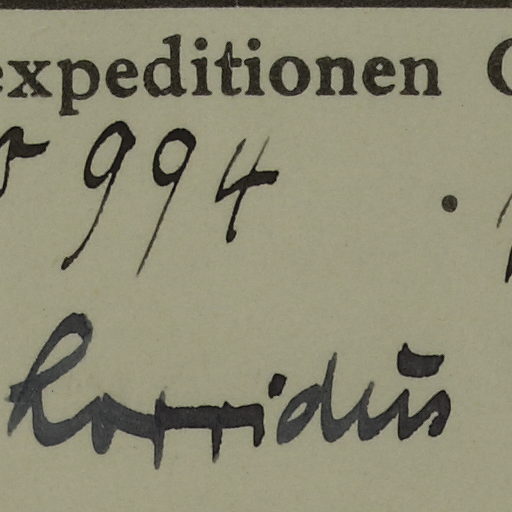 expeditionen
994 .
horridus